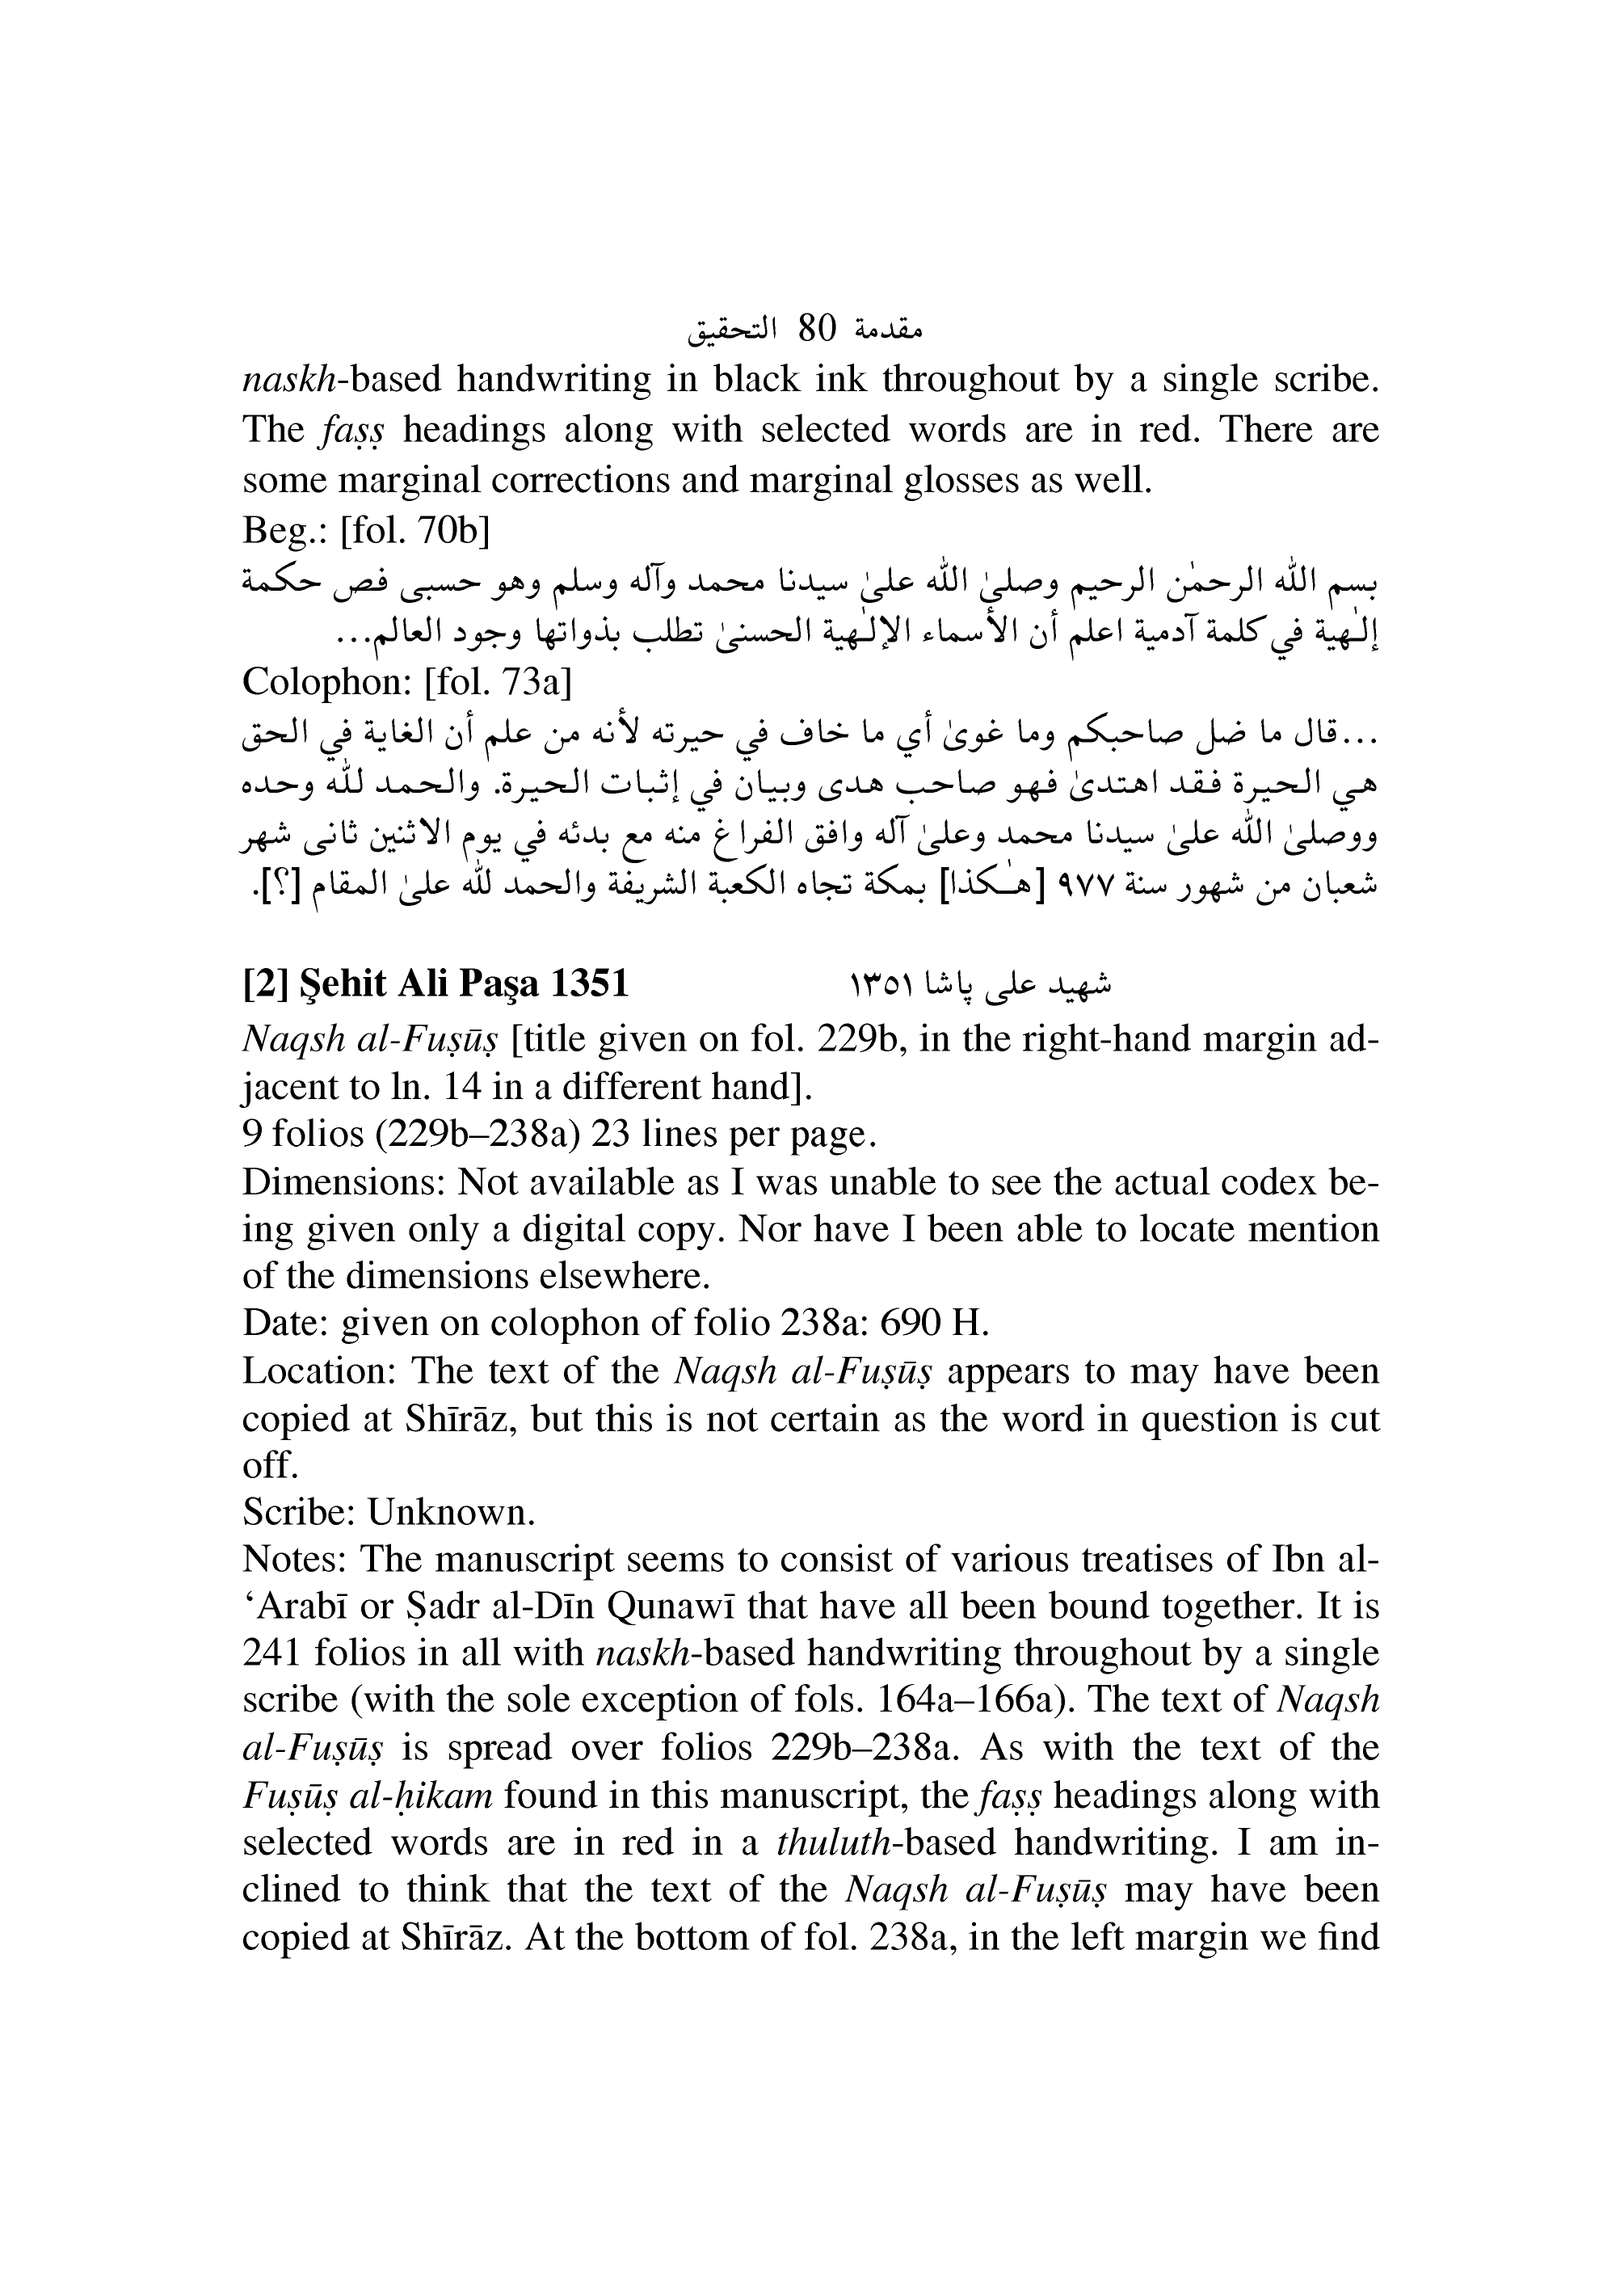 مقدمة 80 التحقيق
naskh-based handwriting in black ink throughout by a single scribe.
The faṣṣ headings along with selected words are in red. There are
some marginal corrections and marginal glosses as well.
Beg.: [fol. 70b]
بسم الله الرحمٰن الرحيم وصلىٰ الله علىٰ سيدنا محمد وآله وسلم وهو حسبى فص حكمة
إلـٰهية في كلمة آدمية اعلم أن الأسماء الإلـٰهية الحسنىٰ تطلب بذواتها وجود العالم...
Colophon: [fol. 73a]
...قال ما ضل صاحبكم وما غوىٰ أي ما خاف في حيرته لأنه من علم أن الغاية في الحق
هي الحيرة فقد اهتدىٰ فهو صاحب هدى وبيان في إثبات الحيرة. والحمد لله وحده
ووصلىٰ الله علىٰ سيدنا محمد وعلىٰ آله وافق الفراغ منه مع بدئه في يوم الاثنين ثانى شهر
شعبان من شهور سنة ٩٧٧ [هـٰكذا] بمكة تجاه الكعبة الشريفة والحمد لله علىٰ المقام [؟].
[2] Şehit Ali Paşa 1351 شهيد على پاشا ١٣٥١
Naqsh al-Fuṣūṣ [title given on fol. 229b, in the right-hand margin ad-
jacent to ln. 14 in a different hand].
9 folios (229b–238a) 23 lines per page.
Dimensions: Not available as I was unable to see the actual codex be-
ing given only a digital copy. Nor have I been able to locate mention
of the dimensions elsewhere.
Date: given on colophon of folio 238a: 690 H.
Location: The text of the Naqsh al-Fuṣūṣ appears to may have been
copied at Shīrāz, but this is not certain as the word in question is cut
off.
Scribe: Unknown.
Notes: The manuscript seems to consist of various treatises of Ibn al-
‘Arabī or Ṣadr al-Dīn Qunawī that have all been bound together. It is
241 folios in all with naskh-based handwriting throughout by a single
scribe (with the sole exception of fols. 164a–166a). The text of Naqsh
al-Fuṣūṣ is spread over folios 229b–238a. As with the text of the
Fuṣūṣ al-ḥikam found in this manuscript, the faṣṣ headings along with
selected words are in red in a thuluth-based handwriting. I am in-
clined to think that the text of the Naqsh al-Fuṣūṣ may have been
copied at Shīrāz. At the bottom of fol. 238a, in the left margin we find